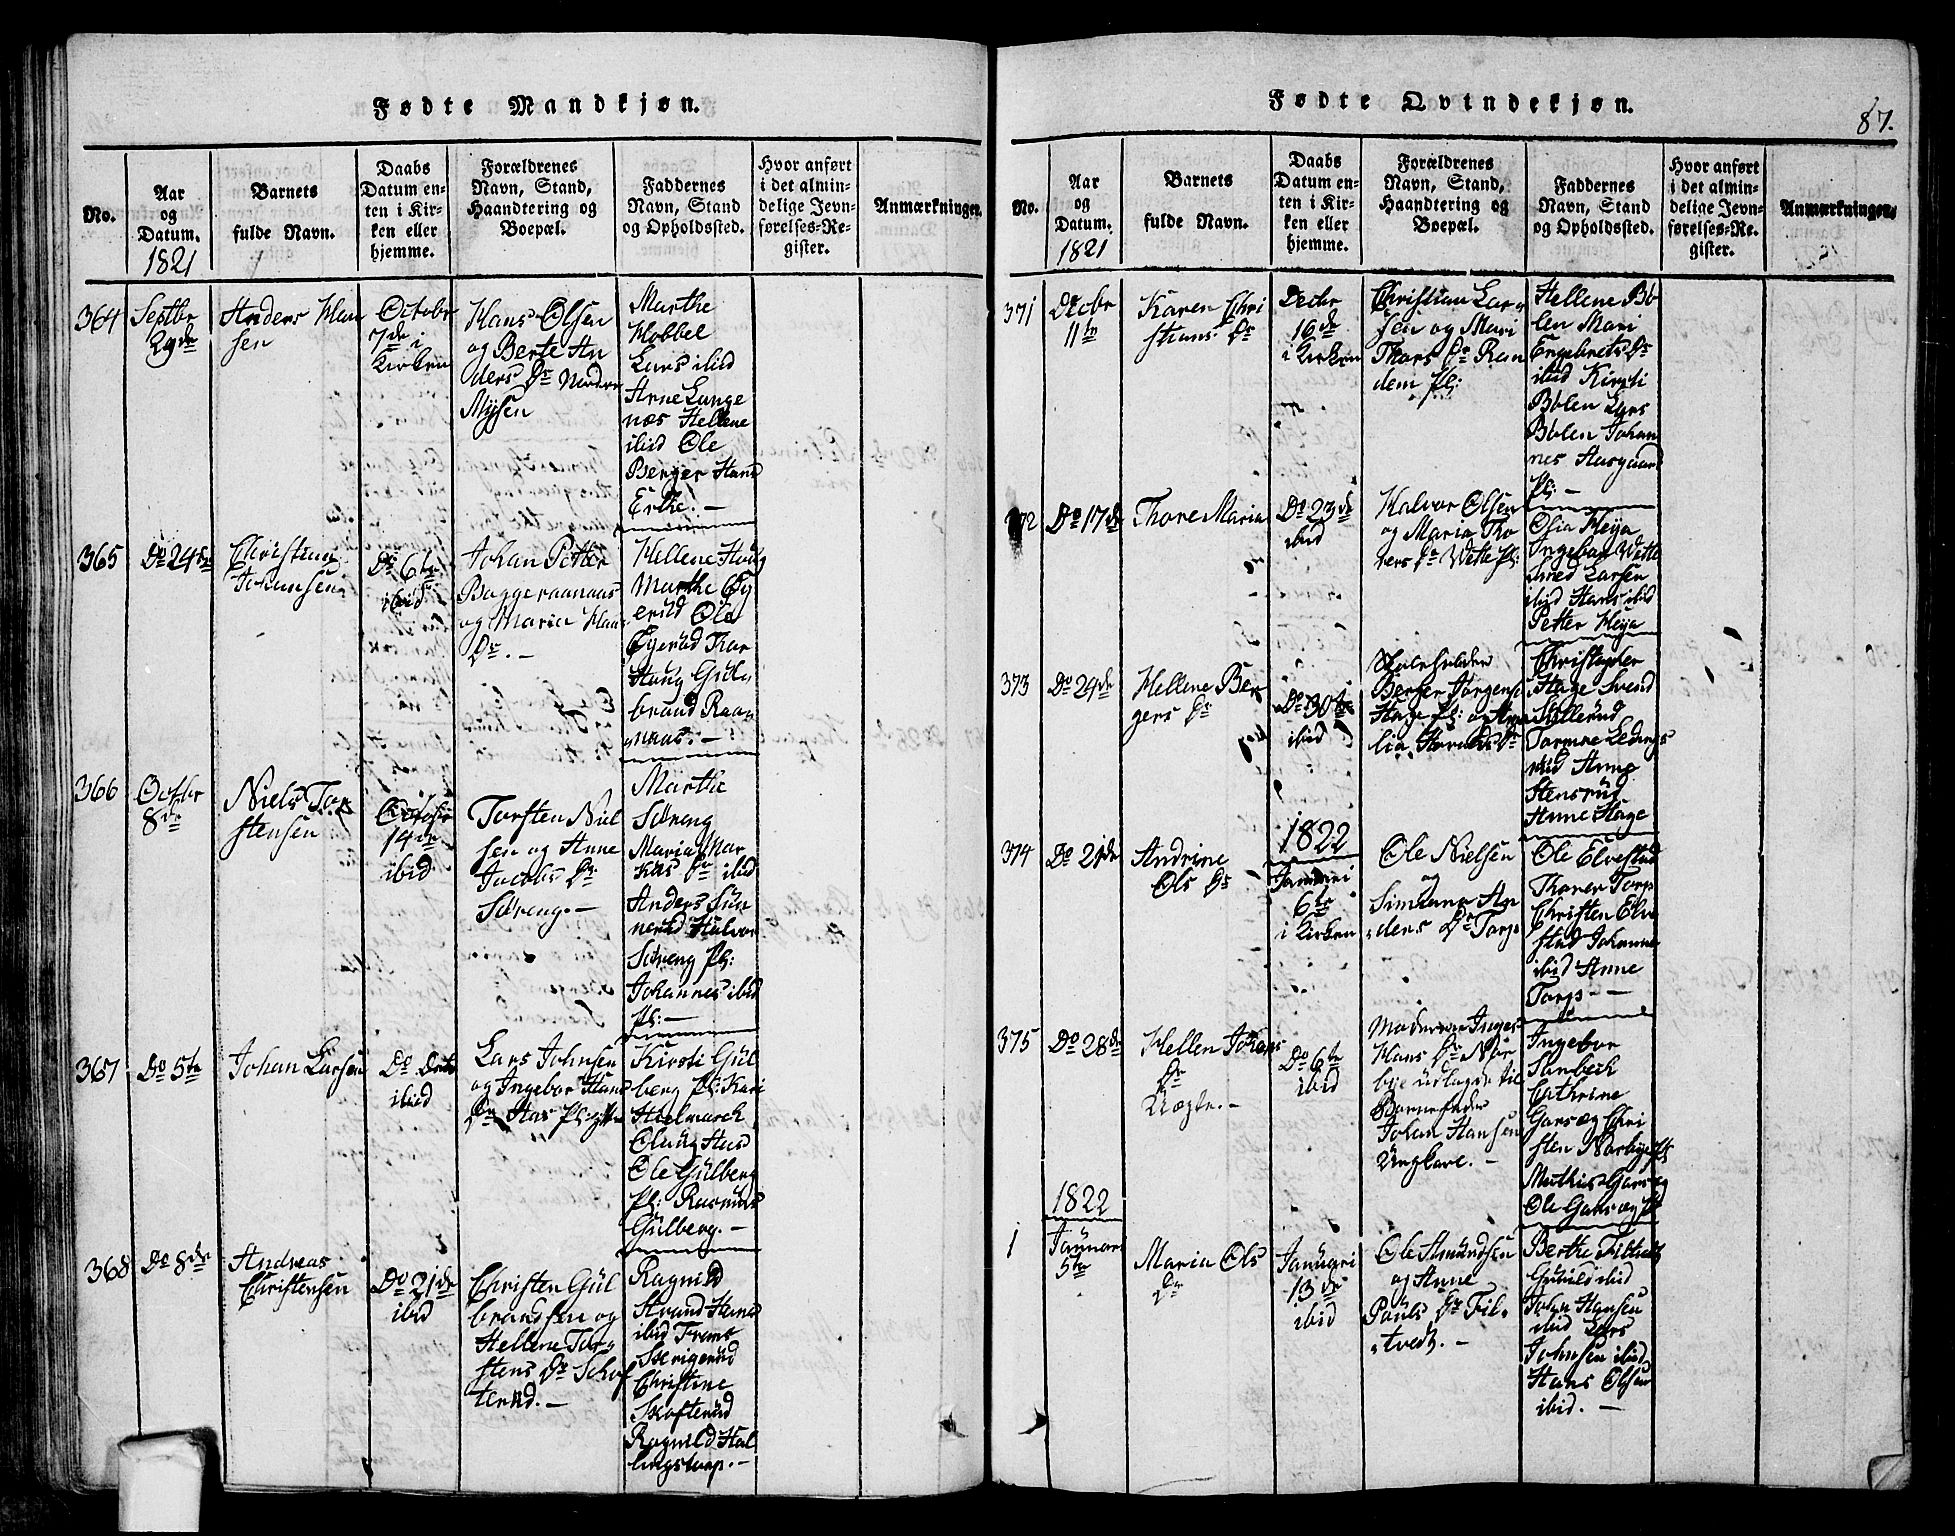 Fødte Mandkjøn.
No.
Aar
og
Datum.
1821
Barnets
fulde Navn.
Daabs
Datum en-
ten i Kir-
ken eller
hjemme.
Forældrenes
Navn, Stand,
Haandtering og
Boepæl.
Faddernes
Navn, Stand
og Opholdssted.
Hvor anført
i det almin-
delige Jevn-
førelses-Re-
gister.
Anmærkninger.
364
Septbr
29de
Anders Han
sen
Octobr
7de i
Kirken
Hans Olsen
og Berte An
ders Dr
Mysen
Marthe
Kobbel
Lars ibid
Arne Lunge
næs Hellene
ibid Ole
Berger Hans
365
Do 24de
Christian
Johansen
Do 6te
ibid
Johan Petter
og Maria Hans
Dr. -
Hellene Haug
Marthe Øy
erud Ole
Øyerud Kar
Haug Gul
brand Raa
naas. -
366
Octbr
8de
Niels Tor
stensen
Octobr
14de
ibid
Torsten Niel
sen og Anne
Jacobs Dr
Søreng. -
Marthe
Søreng
Maria Mar
kus Dr ibid
Anders Sun
nerud Halvor
Søreng Pl:
Johannes ibid
Pl: -
367
Do 5te
Johan Larsen
Do
ibid
Lars Johnsen
og Ingebor Hans
Dr Aas Pl:
Kirsti Gul
berg Pl: Kari
Hielmarck
Ole Gulberg
Pl: Rasmus
Gulberg. -
368
Do 8de
Andreas
Christensen
Do 21de
ibid
Christen Gul
brandsen og
Hellene Tor
stens Dr Schof
terud. -
Ragnild
Strand Hans
ibid
Christine
Skofterud
Ragnild Hal
lingstrap. -
Fødte Qvindekjøn.
87.
No.
Aar
og
Datum.
1821
Barnets
fulde Navn.
Daabs
Datum en-
ten i Kir-
ken eller
hjemme.
Forældrenes
Navn, Stand,
Haandtering og
Boepæl.
Faddernes
Navn, Stand
og Opholdssted.
Hvor anført
i det almin-
delige Jevn-
førelses-Re-
gister.
Anmærkninger.
371
Decbr
11te
Karen Chri
stians Dr
Decbr
16de
i Kirken
Christian Lar
sen og Mari
Thors Dr Ram
dem Pl:
Hellene Bö
len Mari
Engebrets Dr
ibid Kirsti
Bölen Lars
Bölen Johan
nes Aasgaard
Pl: -
372
Do 17de
Thore Maria
Do 23de
ibid
Halvor Olsen
og Maria Tho
rers Dr Wette Pl:
Olia Heija
Ingebor Wette
Lars Larsen
ibid Hans ibid
Petter Heija
373
Do 24de
Hellene Ber
gers Dr
Do 30te
ibid
Berger Jørgens
Hage Pl: og Ama
lia
Christopher
Hage Svend
ibid Anne
Stensrud
Anne Hage
374
Do 21de
Andrine
Ols Dr
1822
Januari
6te
i Kirken
Ole Nielsen
og
Simiana An
ders Dr Torp
Ole Elvestad
Thorer Torp
Christen Elve
stad Johanne
ibid Anne
Torp -
375
Do 28de
Hellen Johans
Dr
Uægte. -
Do 6te
ibid
Moderen Inger
Hans Dr Nor
bye udlagde til
Barnefader
Johan Hansen
Ungkarl. -
Ingebor
Sanbeck
Cathrine
Garsæg Chri
sten Norbye
Mathis Garsæg
Ole Garsæg Pl
1822
1
Januari
5te
Maria Ols
Dr
Januari
13de
ibid
Ole Amundsen
og Anne
Pouls Dr Fil
tvedt. -
Berthe Filtvedt
Gunild ibid
John Hansen
ibid Lars
Johnsen ibid
Hans Olsen
ibid. -